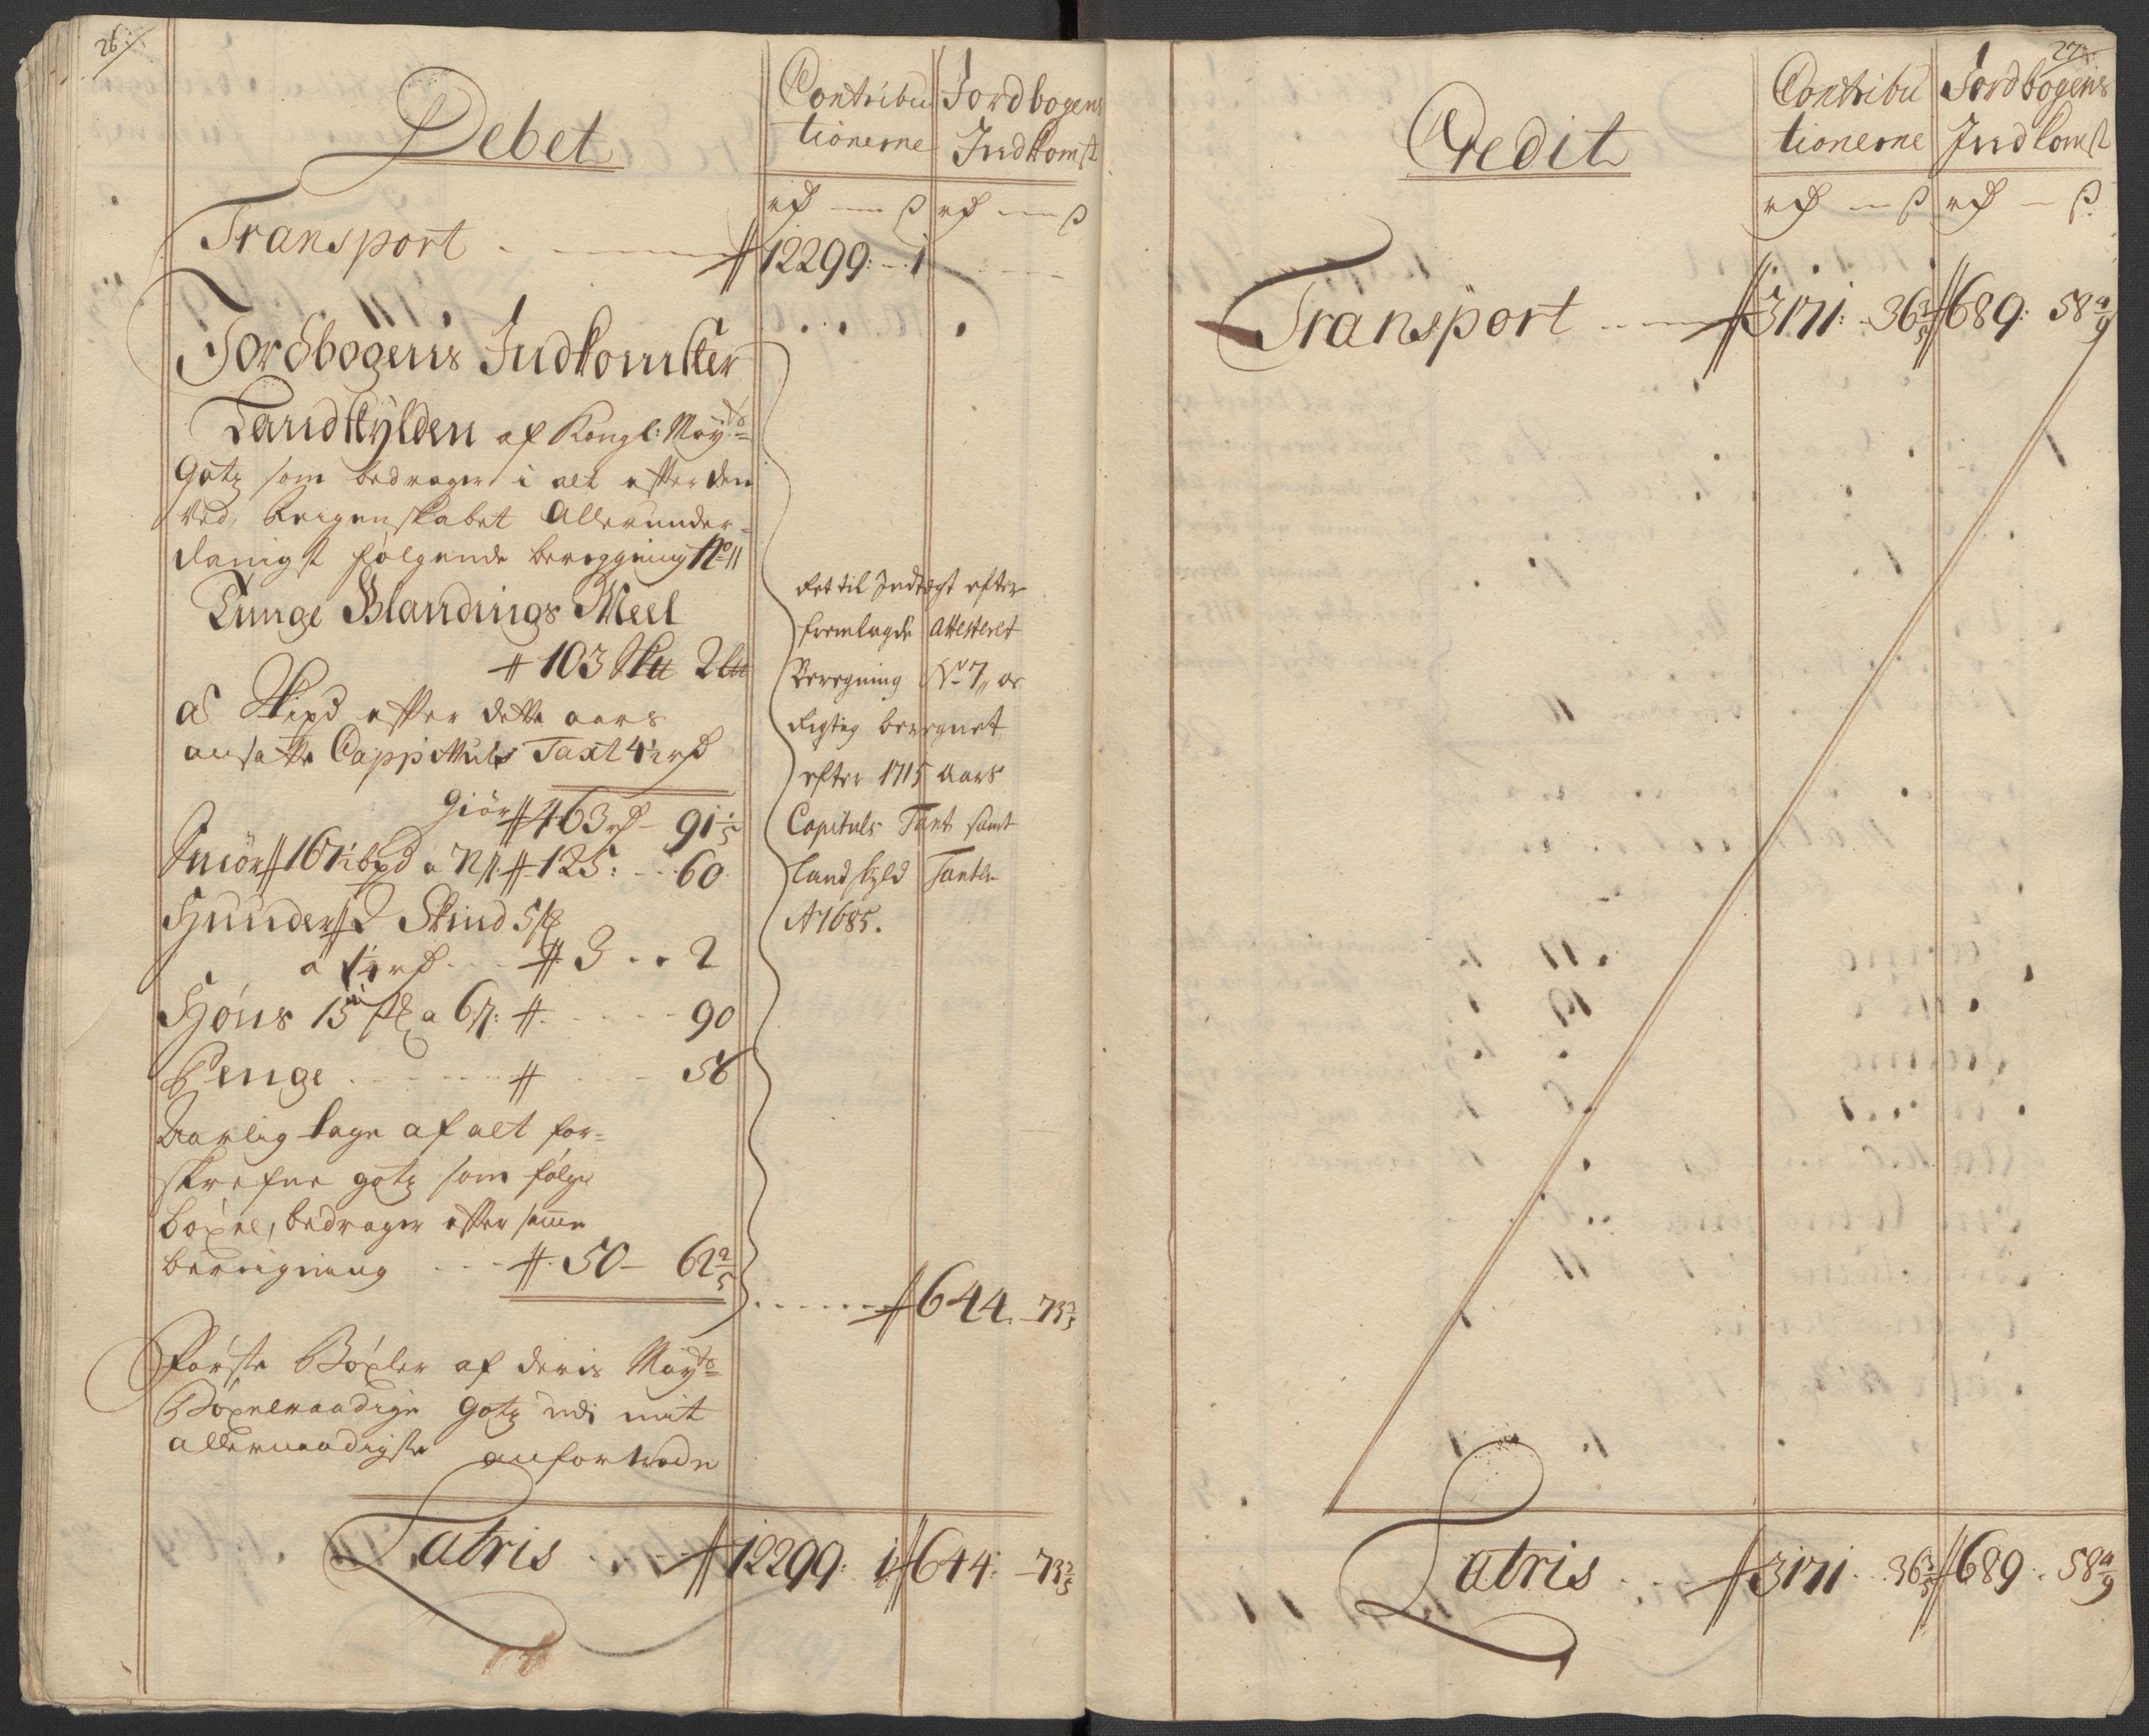 26
Debet
Contribu
tionerne
Jordbogens
Indkomst
rd — ß rd — ß
Transport # 12299: 1
Jordbogens Indkomster
Landskylden af Kongl: May:ts
Gotz som bedrager i alt efter den
ved, Reigenskabet Allerunder-
danigst følgende beregning No 11
Tunge Blandings Meel
# 103 Sk℔ 2 L℔
as Skipd efter dette aars
ansatte Cappittuls Taxt 4½ rd
Giør # 463 rd — 91 1/5
Smør # 16¾ bpd a 72 ß # 125: 60
Hunder # 2 Skind 5 st
a ¼ rd # 3 .. 2
Høns 15 st a 6 ß: # 90
Penge # 56
Aarlig tage af alt for-
skrefne gotz som følger
böxel, bedrager efter samme
beregning # 50 — 62 2/5
# 644. 73 3/5
det til Indtægt efter
fremlagde Attesteret
Beregning No 7, er
Rigtig beregnet
efter 1715 Aars
Capituls Taxt samt
Landskyld Taxten
Ao 1685.
Første Böxler af deris May:ts
Böxelraadige Gotz udi mit
allernaadigste anfortrode
Latris # 12299: 1 # 644: 73 3/5
27
Credit
Contribu
tionerne
Jordbogens
Indkomst
rd — ß rd — ß
Transport # 3171: 36 3/5 # 689: 58 4/9
Latris # 3171 36 3/5 # 689: 58 4/9